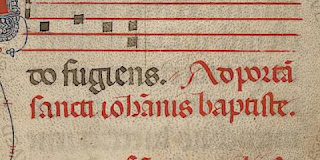 do fugiens. Ad portā
sancti iohānis baptiste.